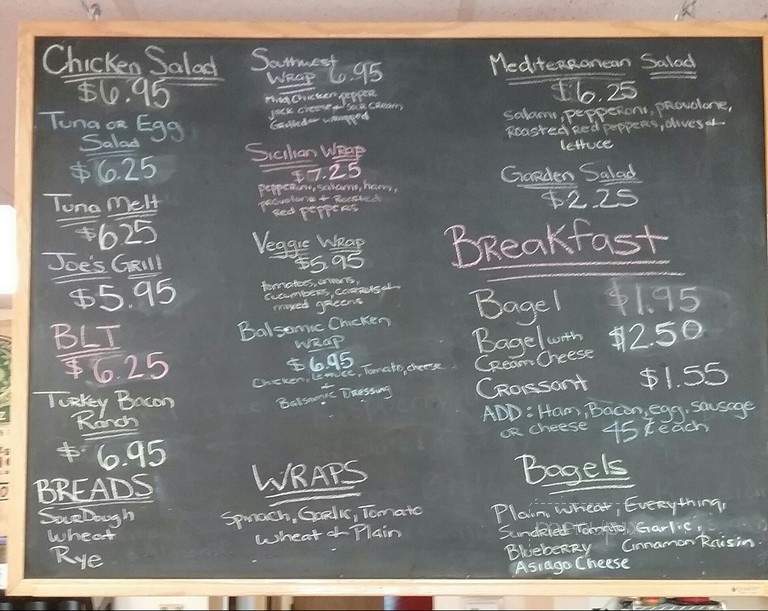 Chicken Salad
$6.95
Tuna or Egg
Salad
$6.25
Tuna Melt
$6.25
Joe's Grill
$5.95
BLT
$6.25
Turkey Bacon
Ranch
$6.95
BREADS
SourDough
wheat
Rye
Southwest
Wrap 6.95
Chicken, pepper
jack cheese, sour cream,
Grilled wrapped
Sicilian Wrap
$7.25
pepperoni, salami, ham,
provolone + Roasted
red peppers
Veggie Wrap
$5.95
tomatoes, onions,
cucumbers, carrots +
mixed greens
Balsamic Chicken
Wrap
$6.95
Chicken, Lettuce, Tomato, cheese
+
Balsamic Dressing
WRAPS
Spinach, Garlic, Tomato
wheat + Plain
Mediterranean Salad
$6.25
Salami, pepperoni, provolone,
Roasted red peppers, olives +
lettuce
Garden Salad
$2.25
Breakfast
Bagel $1.95
Bagel with
Cream Cheese $2.50
Croissant $1.55
ADD: Ham, Bacon, egg, sausage
or cheese 45¢ each
Bagels
Plain, wheat, Everything,
Sundried Tomato, Garlic,
Blueberry Cinnamon Raisin
Asiago Cheese